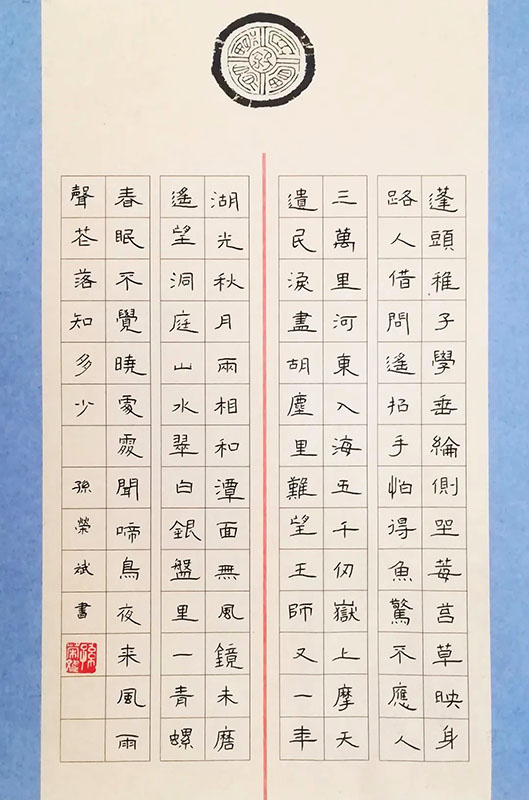 蓬頭稚子學垂綸側坐莓莒草映身
路人借問遙招手怕得魚驚不應人
三萬里河東入海五千仞嶽上摩天
遺民淚盡胡塵里難望王師又一年
湖光秋月兩相和潭面無風鏡未磨
遙望洞庭山水翠白銀盤里一青螺
春眠不覺曉處處聞啼鳥夜来風雨
聲花落知多少 孫榮斌書